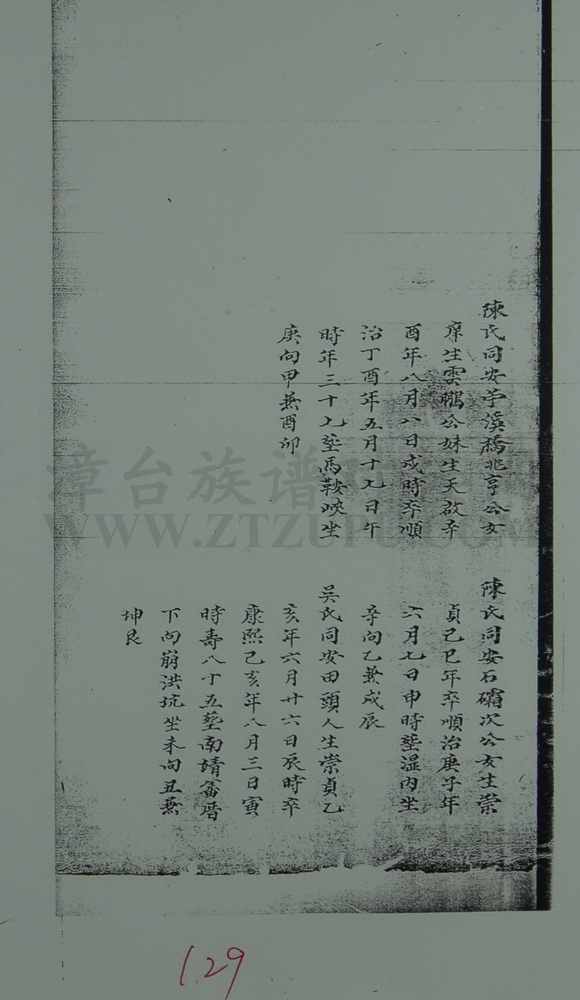 陳氏同安苧溪橋兆亨公女
庠生雲鵬公妹生天啟辛
酉年八月八日戌時卒順
治丁酉年五月十九日午
時年三十七塟馬鞍峽坐
庚向甲兼酉卯
陳氏同安石礵次公女生崇
貞己巳年卒順治庚子年
六月七日申時塟湿內坐
辛向乙兼戌辰
吳氏同安田頭人生崇貞乙
亥年六月廿六日辰時卒
康熙己亥年八月三日寅
時壽八十五塟南靖畨厝
下向崩洪坑坐未向丑兼
坤艮
漳台族谱
WWW.ZTZUPU.COM
129